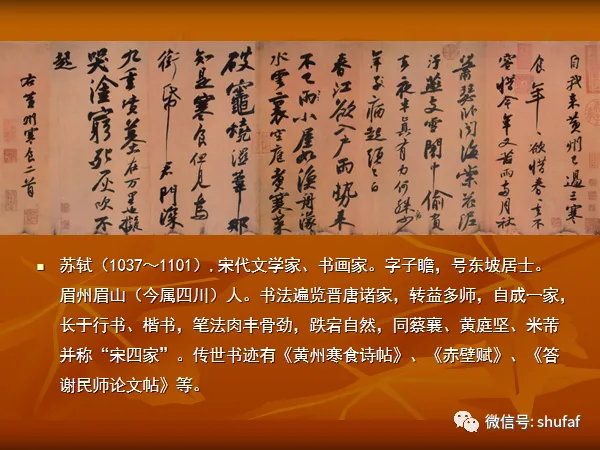 自我來黃州已過三寒
食年〻欲惜春〻去不
容惜今年又苦雨兩月秋
蕭瑟臥聞海棠花泥
汙燕支雪闇中偷負
去夜半真有力何殊病少
年子病起頭已白
春江欲入戶雨勢來
不已雨小屋如漁舟濛〻
水雲裏空庖煮寒菜
破竈燒濕葦那
知是寒食但見烏
銜帋君門深
九重墳墓在万里也擬
哭塗窮死灰吹不
起
右黃州寒食二首
苏轼（1037～1101）.宋代文学家、书画家。字子瞻，号东坡居士。
眉州眉山（今属四川）人。书法遍览晋唐诸家，转益多师，自成一家，
长于行书、楷书，笔法肉丰骨劲，跌宕自然，同蔡襄、黄庭坚、米芾
并称“宋四家”。传世书迹有《黄州寒食诗帖》、《赤壁赋》、《答
谢民师论文帖》等。
微信号: shufaf